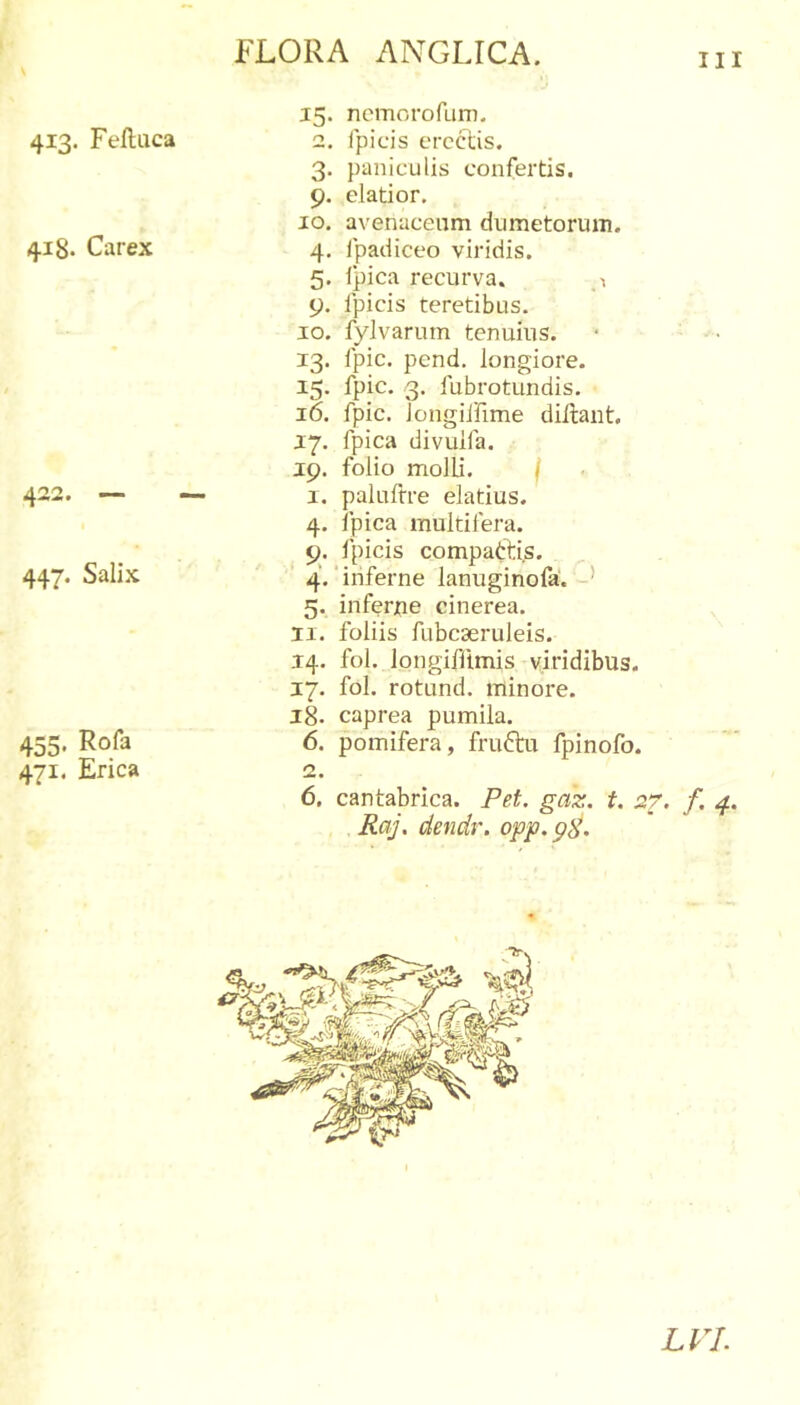 FLORA ANGLICA. 111
15. nemorofum.
413. Feſtuca 2. ſpicis erectis.
3. paniculis confertis.
9. elatior.
10. avenaceum dumetorum.
418. Carex 4. ſpadiceo viridis.
5. ſpica recurva.
9. ſpicis teretibus.
10. ſylvarum tenuius.
13. ſpic. pend. longiore.
15. ſpic. 3. ſubrotundis.
16. ſpic. longiſſime diſtant.
17. ſpica divulſa.
19. folio molli.
422. — — 1. paluſtre elatius.
4. ſpica multifera.
9. ſpicis compactis.
447. Salix 4. inferne lanuginoſa.
5. inferne cinerea.
11. foliis ſubcæruleis.
14. fol. longiſſimis viridibus.
17. fol. rotund. minore.
18. caprea pumila.
455. Roſa 6. pomifera, fructu ſpinoſo.
471. Erica 2.
6. cantabrica. Pet. gaz. t. 27. f. 4.
Raj. dendr. opp. 98.
LVI.